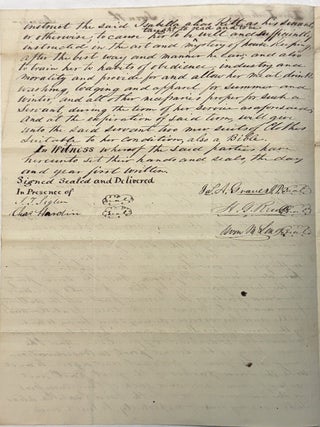 instruct the said Isabella
taught to read and write
or otherwise; to cause her to be well and sufficiently
instructed in the art and mystery of house keeping
after the best way and manner he can, and also
to train her to habits of obedience, industry and
morality and provide for and allow her meat drink
washing, lodging and apparel for Summer and
Winter, and all other necessaries proper for such a
Servant during the term of her Service aforesaid
and at the expiration of said term, will give
unto the said Servant two new suits of Clothes
suitable to her condition, also a Bible.
In Witness whereof the Said parties have
hereunto set their hands and seals, the day
and year first written.
Signed Sealed and Delivered
In Presence of
Chas. Hardin